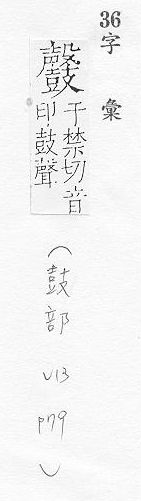 36字彙
于禁切音
印鼓聲
(鼓部 v13 p79)